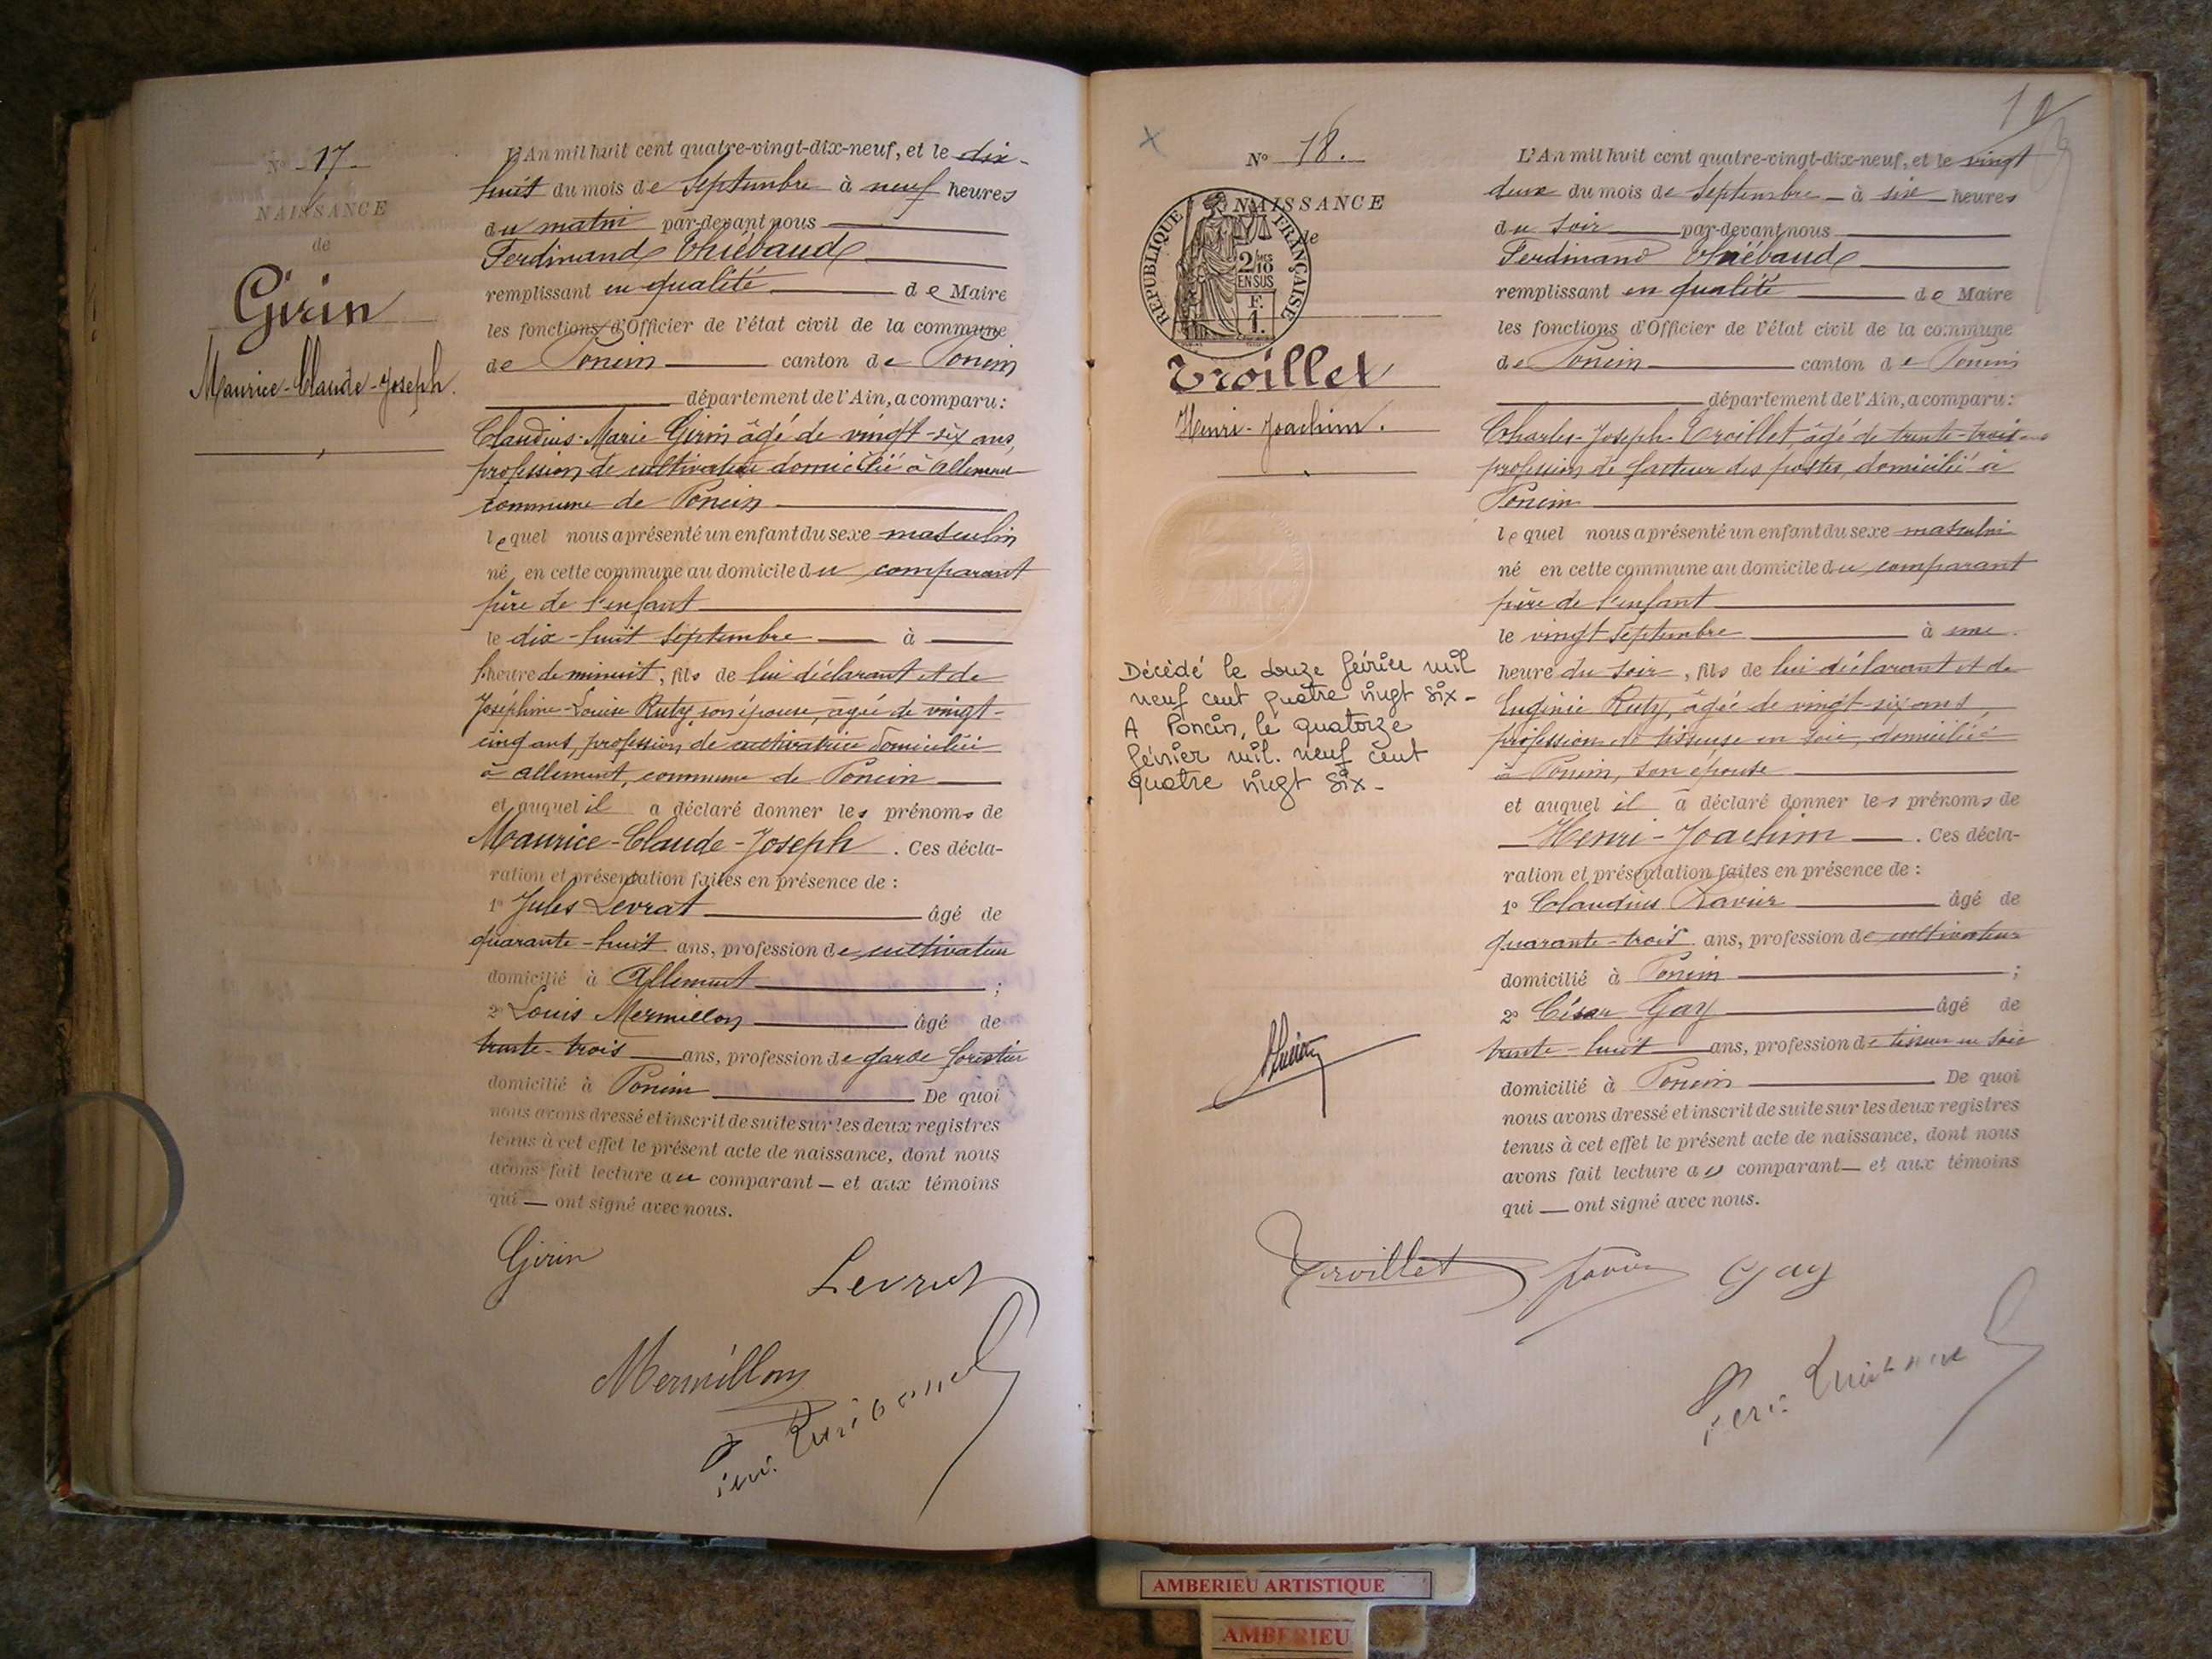 N° 17
NAISSANCE
de
Girin
Maurice-Claude-Joseph.
L'An mil huit cent quatre-vingt-dix-neuf, et le dix-
huit du mois de Septembre à neuf heures
du matin par-devant nous
Ferdinand Thiébaud
remplissant en qualité de Maire
les fonctions d'Officier de l'état civil de la commune
de Poncin canton de Poncin
département de l'Ain, a comparu:
Claudius-Marie Girin âgé de vingt-six ans,
profession de cultivateur domicilié à Allement
commune de Poncin
lequel nous a présenté un enfant du sexe masculin
né en cette commune au domicile du comparant
père de l'enfant
le dix-huit septembre à
heure de minuit, fils de lui déclarant et de
Joséphine-Louise Ruty, son épouse, âgée de vingt-
cinq ans, profession de cultivatrice domiciliée
à Allement, commune de Poncin
et auquel il a déclaré donner les prénoms de
Maurice-Claude-Joseph. Ces décla-
ration et présentation faites en présence de :
1° Jules Levrat âgé de
quarante-huit ans, profession de cultivateur
domicilié à Allement ;
2° Louis Mermillon âgé de
trente-trois ans, profession de garde forestier
domicilié à Poncin De quoi
nous avons dressé et inscrit de suite sur les deux registres
tenus à cet effet le présent acte de naissance, dont nous
avons fait lecture au comparant et aux témoins
qui ont signé avec nous.
Girin
Levrat
Mermillon
10
N° 18.
NAISSANCE
de
REPUBLIQUE FRANÇAISE
2/10 MES
EN SUS
F.
1.
Troillet
Henri-Joachim.
Décédé le douze février mil
neuf cent quatre vingt six -
A Poncin, le quatorze
février mil. neuf cent
quatre vingt six -
L'An mil huit cent quatre-vingt-dix-neuf, et le vingt
deux du mois de Septembre à six heures
du soir par-devant nous
Ferdinand Thiébaud
remplissant en qualité de Maire
les fonctions d'Officier de l'état civil de la commune
de Poncin canton de Poncin
département de l'Ain, a comparu:
Charles-Joseph Troillet âgé de trente-trois ans
profession de facteur des postes, domicilié à
Poncin
lequel nous a présenté un enfant du sexe masculin
né en cette commune au domicile du comparant
père de l'enfant
le vingt Septembre à une
heure du soir, fils de lui déclarant et de
Eugénie Ruty, âgée de vingt-six ans,
profession de tisseuse en soie, domiciliée
à Poncin, son épouse
et auquel il a déclaré donner les prénoms de
Henri-Joachim. Ces décla-
ration et présentation faites en présence de :
1° Claudius Ravier âgé de
quarante-trois ans, profession de cultivateur
domicilié à Poncin ;
2° César Gay âgé de
trente-huit ans, profession de tisseur en soie
domicilié à Poncin De quoi
nous avons dressé et inscrit de suite sur les deux registres
tenus à cet effet le présent acte de naissance, dont nous
avons fait lecture au comparant et aux témoins
qui ont signé avec nous.
Troillet Gay
AMBERIEU ARTISTIQUE
AMBERIEU